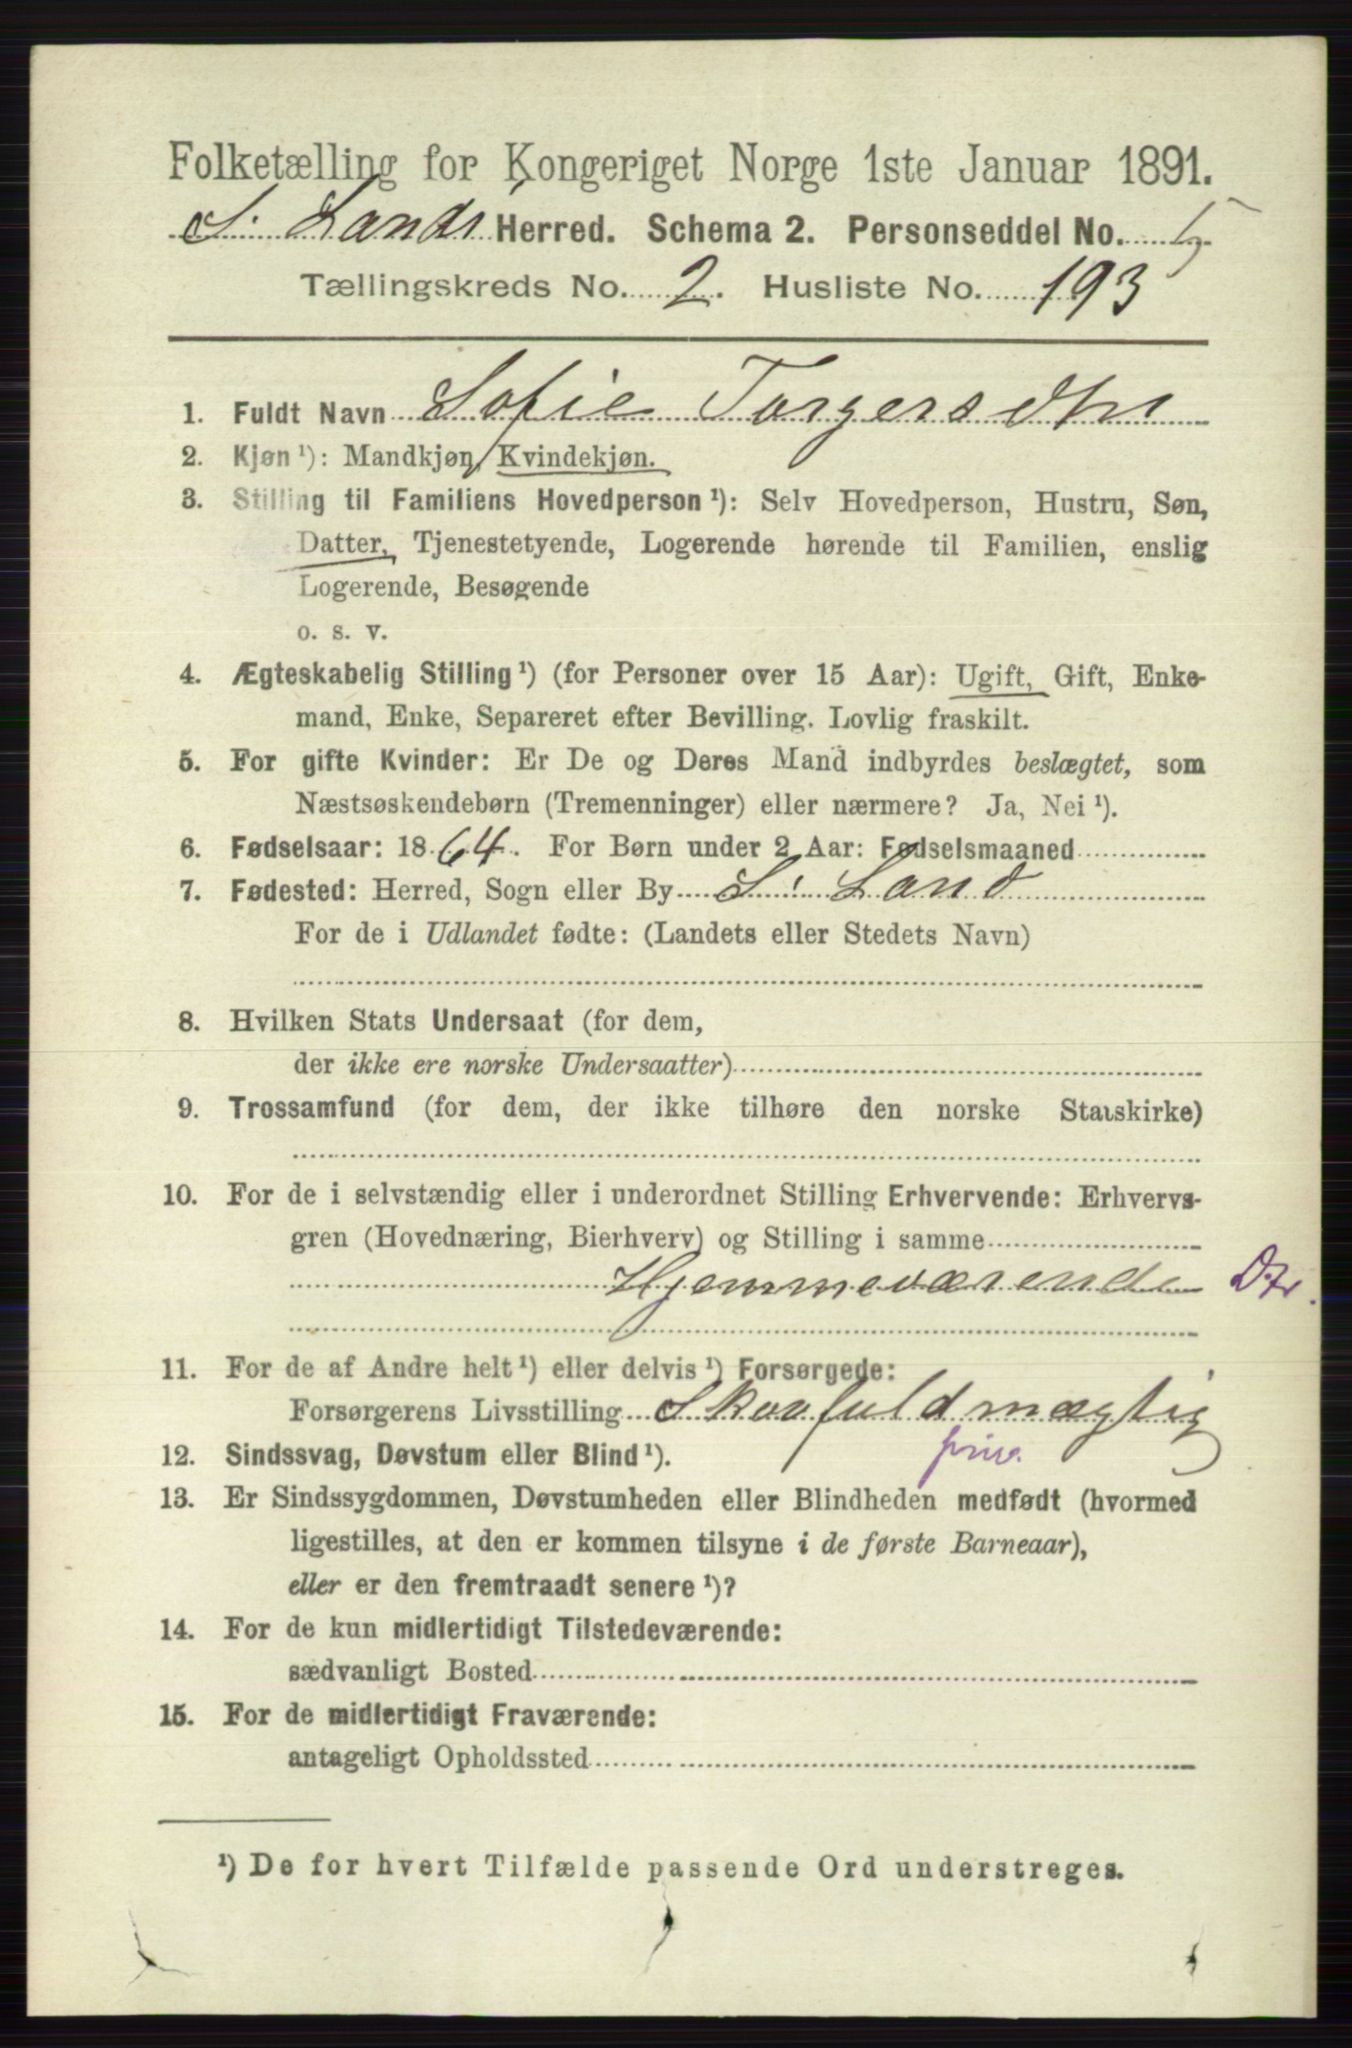 Folketælling for Kongeriget Norge 1ste Januar 1891.
S. Lands Herred. Schema 2. Personseddel No. 5
Tællingskreds No. 2. Husliste No. 193
1. Fuldt Navn Sofie Torgersdtr
2. Kjøn ¹): Mandkjøn, Kvindekjøn.
3. Stilling til Familiens Hovedperson ¹): Selv Hovedperson, Hustru, Søn,
Datter, Tjenestetyende, Logerende hørende til Familien, enslig
Logerende, Besøgende
o. s. v.
4. Ægteskabelig Stilling ¹) (for Personer over 15 Aar): Ugift, Gift, Enke-
mand, Enke, Separeret efter Bevilling. Lovlig fraskilt.
5. For gifte Kvinder: Er De og Deres Mand indbyrdes beslægtet, som
Næstsøskendebørn (Tremenninger) eller nærmere? Ja, Nei ¹).
6. Fødselsaar: 1864. For Børn under 2 Aar: Fødselsmaaned
7. Fødested: Herred, Sogn eller By S. Land
For de i Udlandet fødte: (Landets eller Stedets Navn)
8. Hvilken Stats Undersaat (for dem,
der ikke ere norske Undersaatter)
9. Trossamfund (for dem, der ikke tilhøre den norske Statskirke)
10. For de i selvstændig eller i underordnet Stilling Erhvervende: Erhvervs-
gren (Hovednæring, Bierhverv) og Stilling i samme
Hjemmeværende Dtr.
11. For de af Andre helt ¹) eller delvis ¹) Forsørgede:
Forsørgerens Livsstilling Skovfuldmægtig
priv.
12. Sindssvag, Døvstum eller Blind ¹).
13. Er Sindssygdommen, Døvstumheden eller Blindheden medfødt (hvormed
ligestilles, at den er kommen tilsyne i de første Barneaar),
eller er den fremtraadt senere ¹)?
14. For de kun midlertidigt Tilstedeværende:
sædvanligt Bosted
15. For de midlertidigt Fraværende:
antageligt Opholdssted
¹) De for hvert Tilfælde passende Ord understreges.